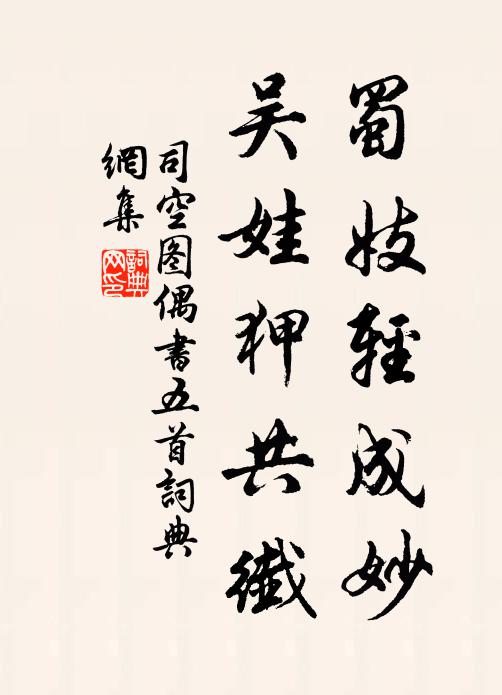 蜀妓輕成妙
吳娃狎共纖
司空图偶書五首詞典
網集
詞典
网印